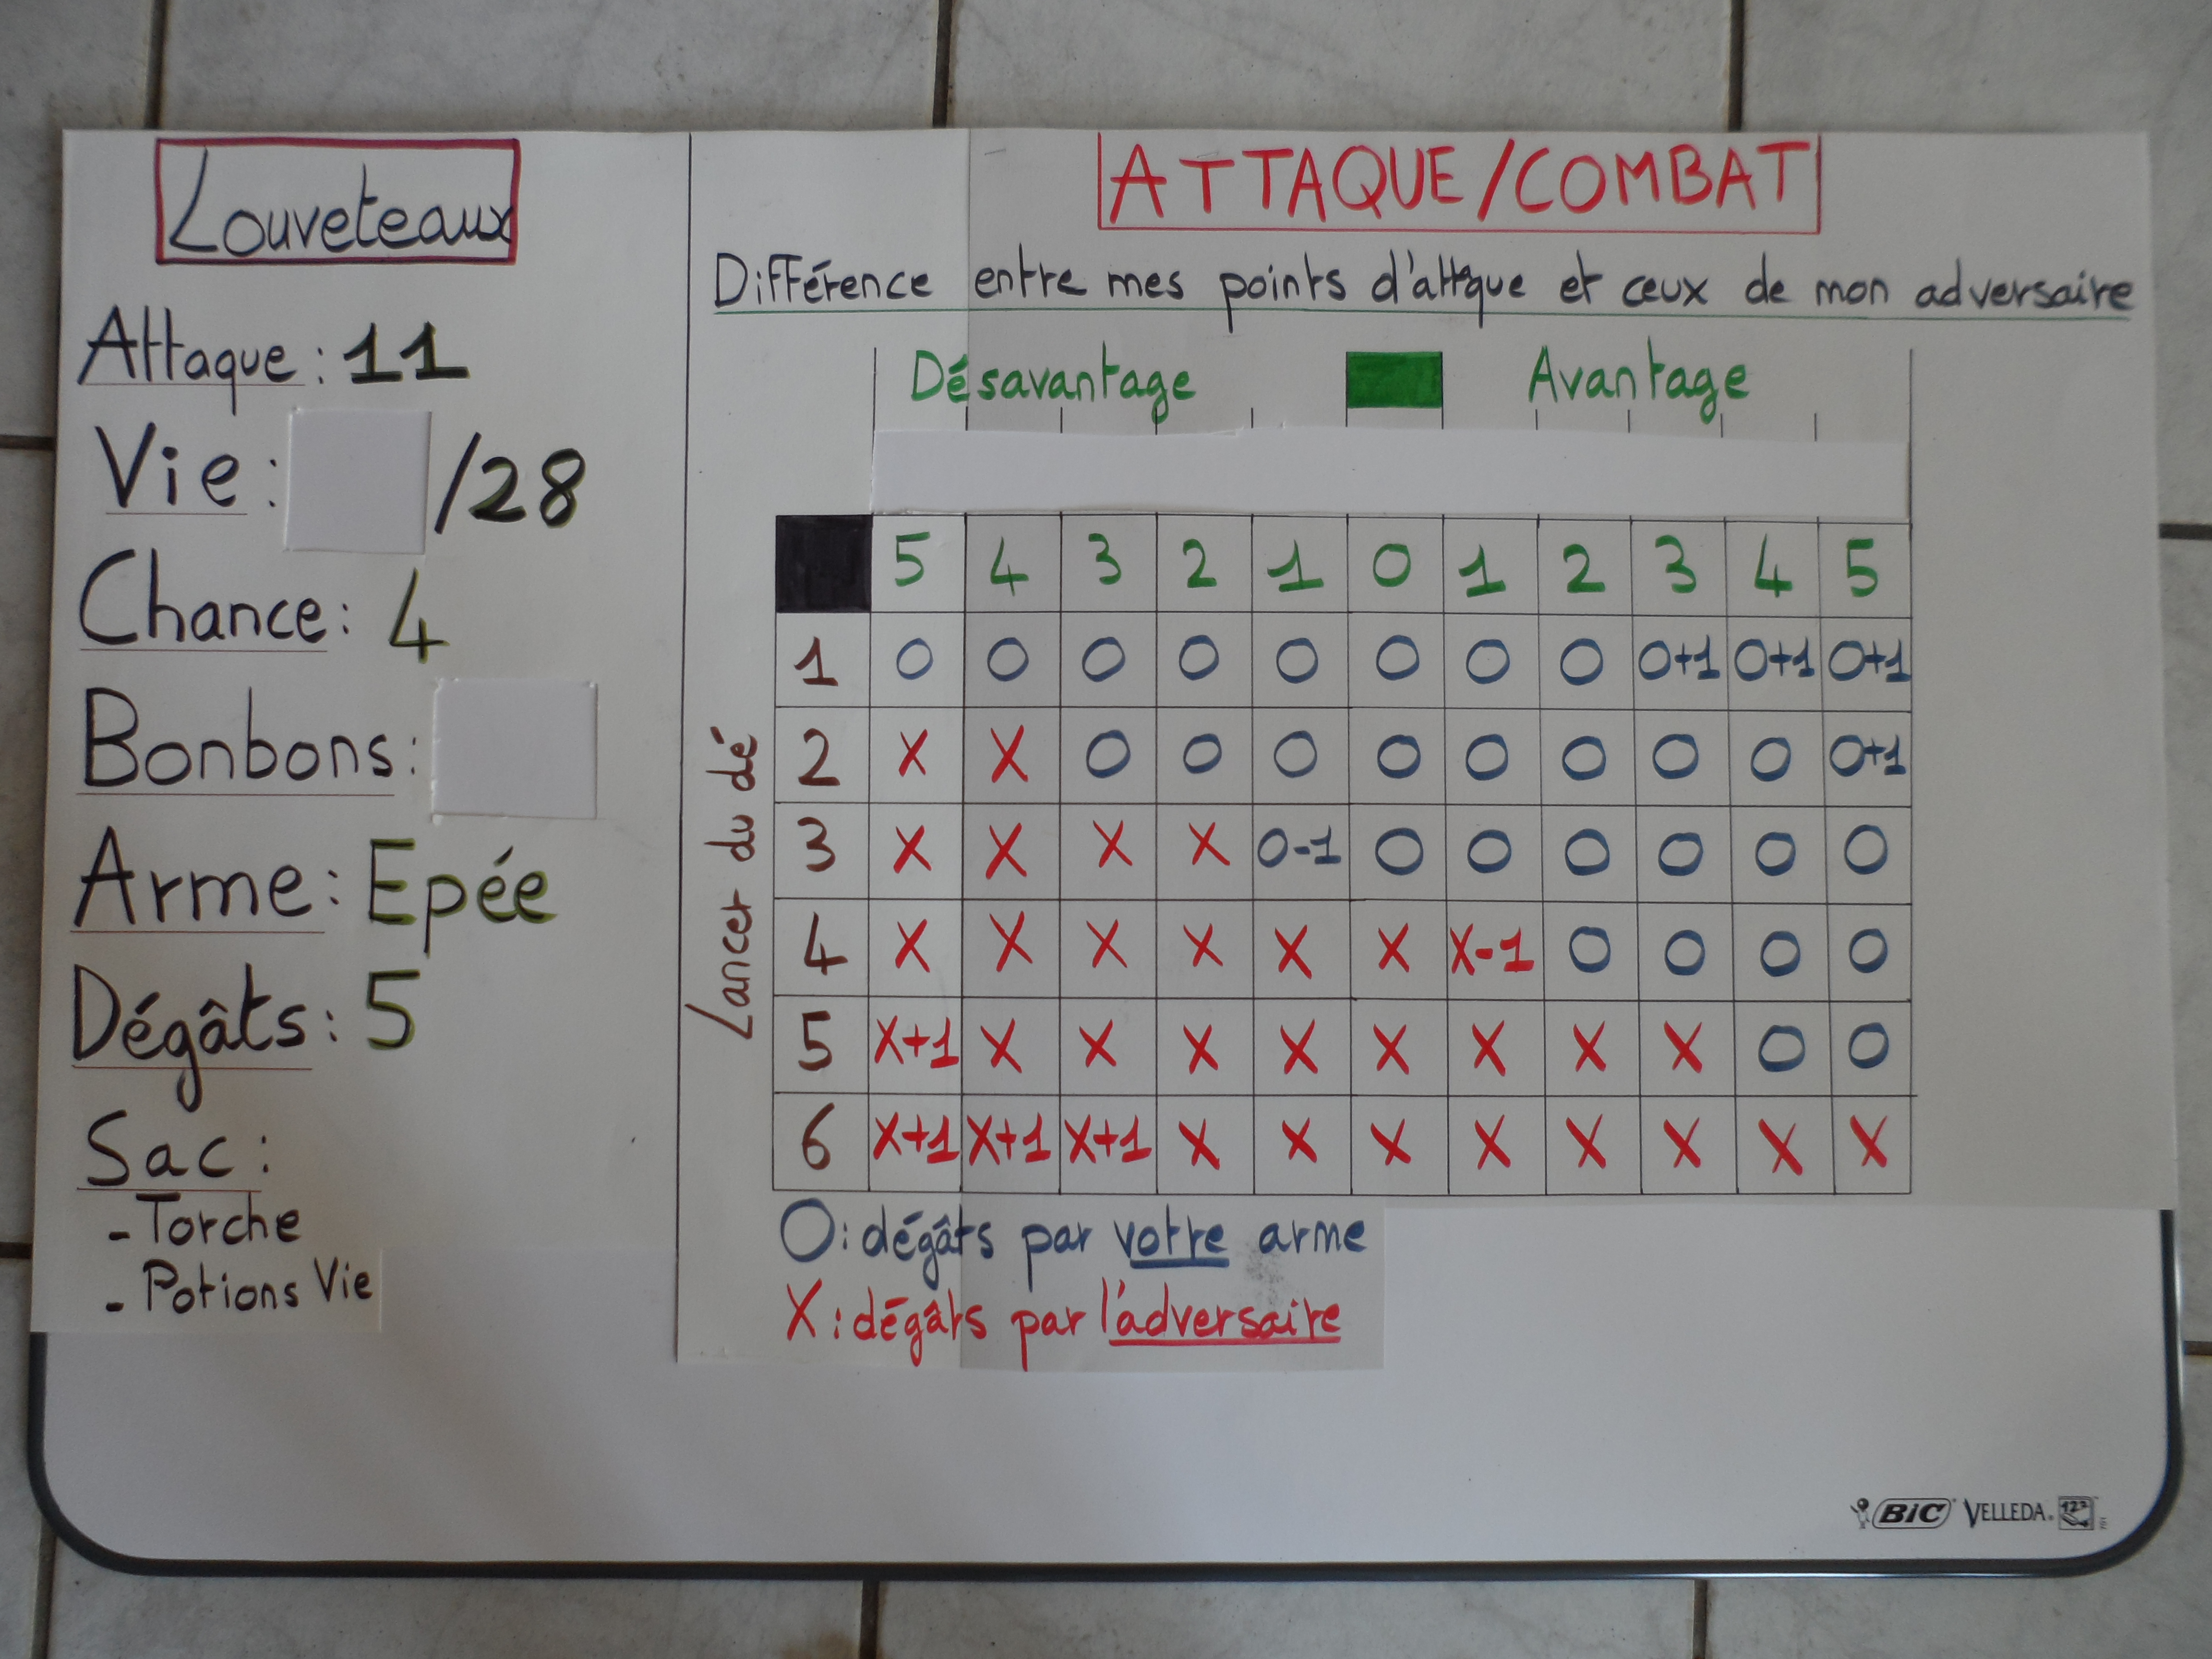 Louveteaux
Attaque : 11
Vie : /28
Chance : 4
Bonbons :
Arme : Epée
Dégâts : 5
Sac :
- Torche
- Potions Vie
ATTAQUE/COMBAT
Différence entre mes points d'attaque et ceux de mon adversaire
Désavantage Avantage
5 4 3 2 1 0 1 2 3 4 5
Lancer du dé
1 O O O O O O O O O+1 O+1 O+1
2 X X O O O O O O O O O+1
3 X X X X O-1 O O O O O O
4 X X X X X X X-1 O O O O
5 X+1 X X X X X X X X O O
6 X+1 X+1 X+1 X X X X X X X X
O : dégâts par votre arme
X : dégâts par l'adversaire
BIC VELLEDA